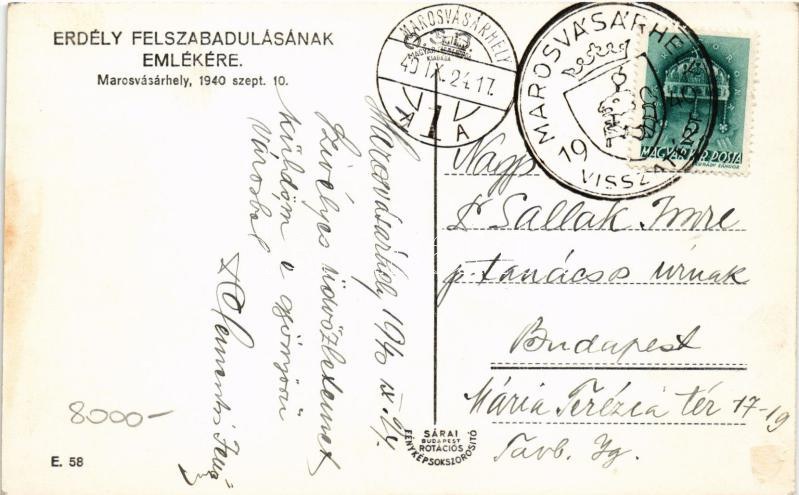 ERDÉLY FELSZABADULÁSÁNAK
EMLÉKÉRE.
Marosvásárhely, 1940 szept. 10.
MAROSVÁSÁRHELY
40 IX. 24. 17.
A K
MAROSVÁSÁRHE
19 40
VISSZAT
KORONA
MAGYAR KIR. POSTA
Marosvásárhely 1940 IX. 24.
Szivélyes üdvözletemet
küldöm e gyönyörü
városból
Nagys
Dr Sallak Imre
p. tanácsos úrnak
Budapest
Mária Terézia tér 17-19
Tavb. Ig.
8000-
E. 58
SÁRAI
BUDAPEST
ROTÁCIÓS
FÉNYKÉPSOKSZOROSITÓ